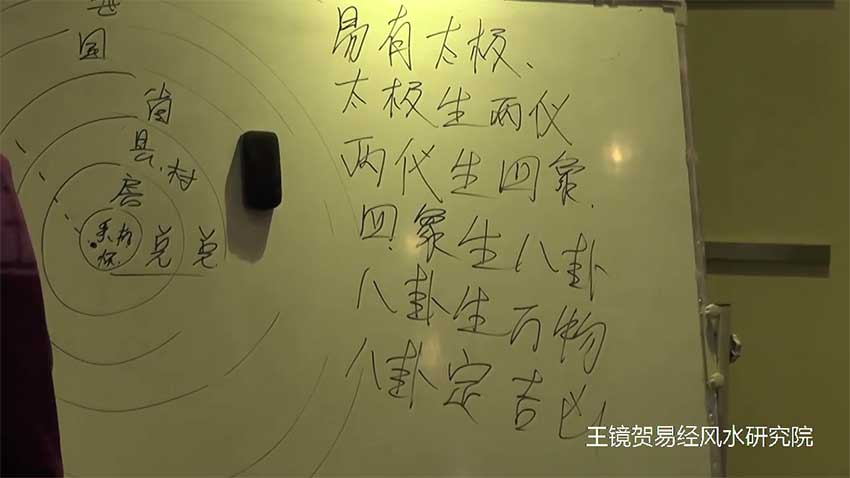 国
省
县.村
房
兑 兑
易有太极、
太极生两仪
两仪生四象.
四.象生八卦
八卦生万物
八卦定吉凶
王镜贺易经风水研究院